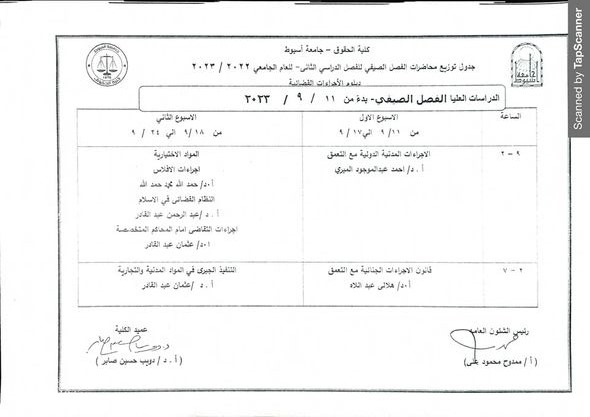 كلية الحقوق - جامعة أسيوط
جدول توزيع محاضرات الفصل الصيفي للفصل الدراسي الثانى - للعام الجامعي ٢٠٢٢ / ٢٠٢٣
دبلوم الأجراءات القضائية
الدراسات العليا الفصل الصيفي- بدءً من ١١ / ٩ / ٢٠٢٣
الساعة
الاسبوع الأول
من ٩/١١ الي٩/١٧
الاسبوع الثاني
من ٩/١٨ الي ٢٤ / ٩
٩ - ٢
الاجراءات المدنية الدولية مع التعمق
أ . د/ احمد عبدالموجود
المواد الاختيارية
اجراءات الافلاس
أ.د/ حمد الله محمد حمد الله
النظام القضائى في الاسلام
أ . د /عبد الرحمن عبد القادر
اجراءات التقاضى امام المحاكم المتخصصة
ا.د/ عثمان عبد القادر
٢ - ٧
قانون الاجراءات الجنائية مع التعمق
أ.د/ هلالى عبد اللاه
التنفيذ الجبرى في المواد المدنية والتجارية
أ . د /عثمان عبد القادر
رئيس الشئون العامه
( أ / ممدوح محمود على )
عميد الكلية
( أ . د / دويب حسين صابر )
Scanned by TapScanner